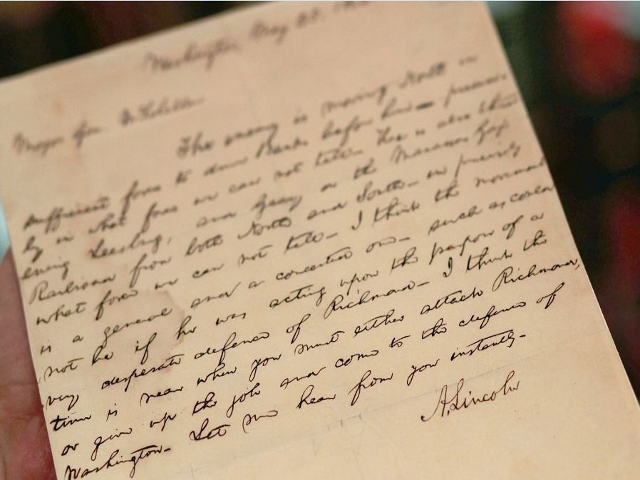 Washington, May 25. 186
Major Gen. McClellan
The enemy is moving North in
sufficient force to drive Banks before him— precise
ly in what force we can not tell. He is also threat
ening Leesburg, and Geary on the Manassas Gap
Railroad from both North and South— in precisely
what force we can not tell— I think the movement
is a general and a concerted one— such as could
not be if he was acting upon the purpose of a
very desperate defence of Richmond— I think the
time is near when you must either attack Richmond,
or give up the job and come to the defence of
Washington. Let me hear from you instantly—
A. Lincoln